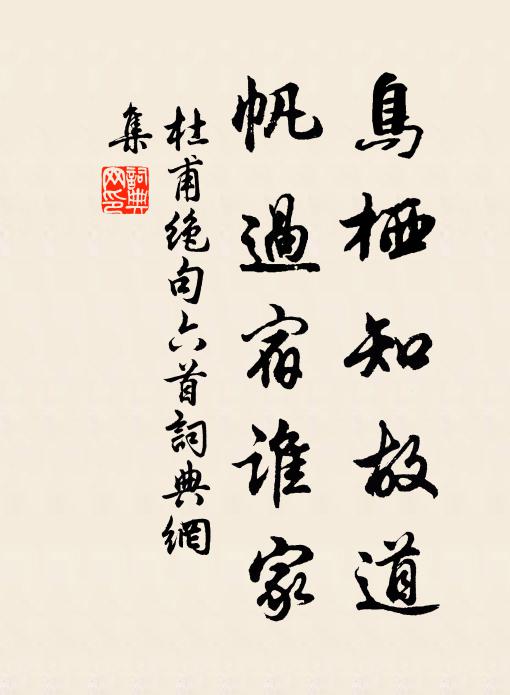 鳥栖知故道
帆過宿誰家
杜甫絶句六首詞典網
集
詞典
网印